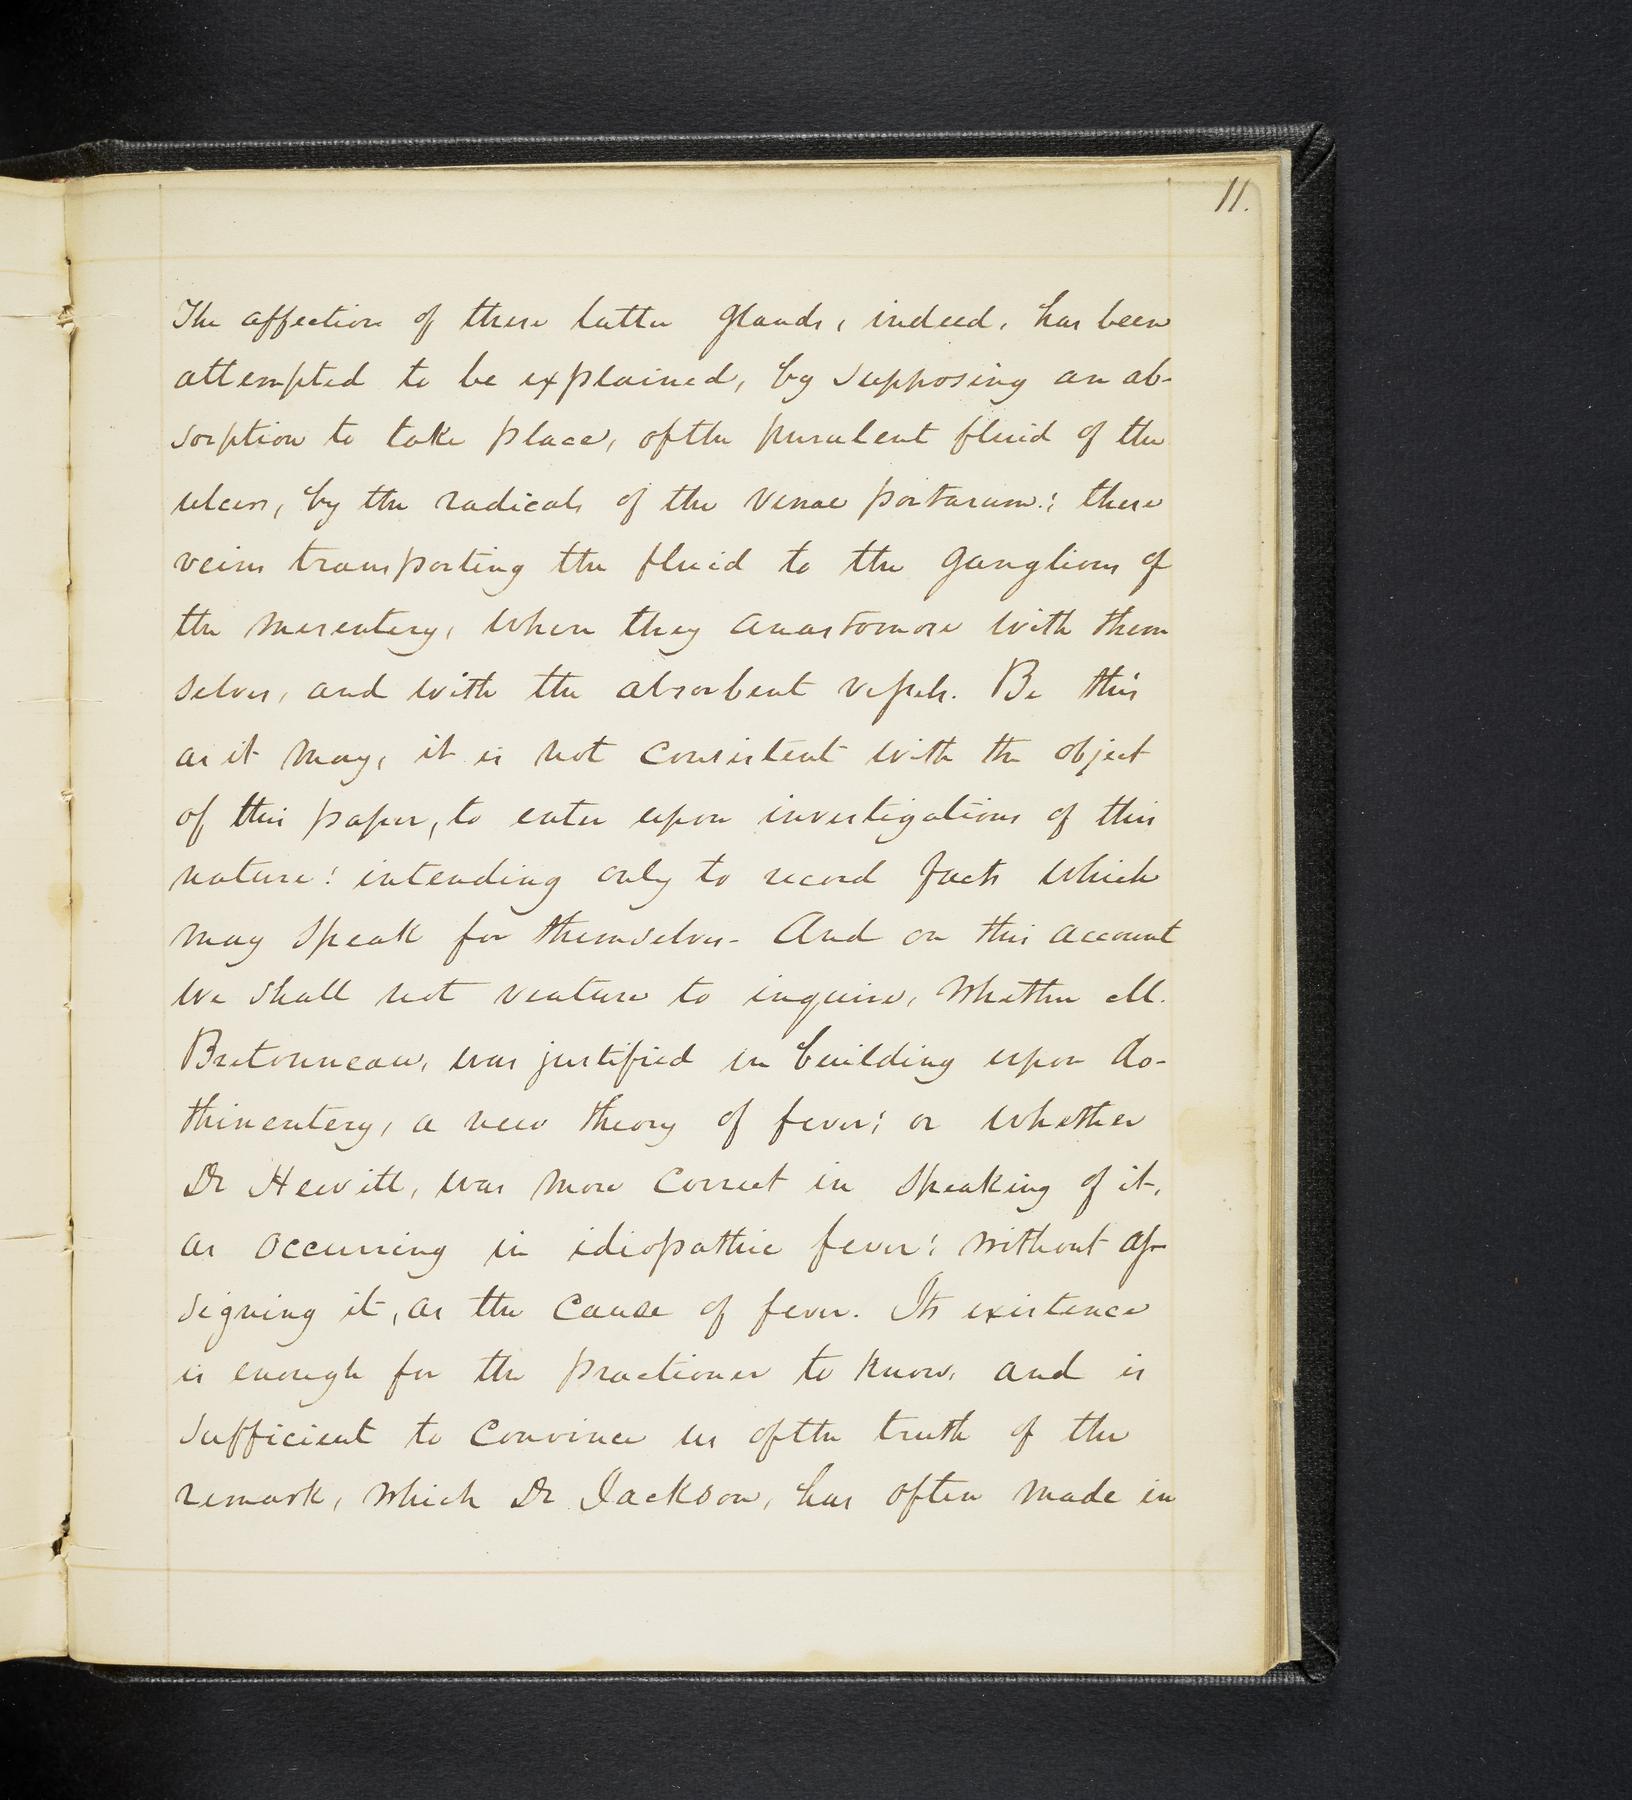 11.
The affection of these latter glands, indeed, has been
attempted to be explained, by supposing an ab-
sorption to take place, of the purulent fluid of the
ulcers, by the radicals of the venae portarum: these
veins transporting the fluid to the ganglions of
the mesentery, where they anastomose with them
selves, and with the absorbent vessels. Be this
as it may, it is not consistent with the object
of this paper, to enter upon investigations of this
nature: intending only to record facts which
may speak for themselves- And on this account
we shall not venture to inquire, whether M.
Bretonneau, was justified in building upon do-
thinentery, a new theory of fever; or whether
Dr Hewitt, was more correct in speaking of it,
as occurring in idiopathic fever; without as-
signing it, as the cause of fever. Its existence
is enough for the practioner to know, and is
sufficient to convince us of the truth of the
remark, which Dr Jackson, has often made in